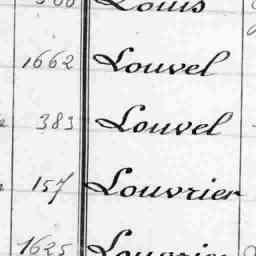 Louis
1662 Louvel
383 Louvel
157 Louvrier
1625 Louvrier